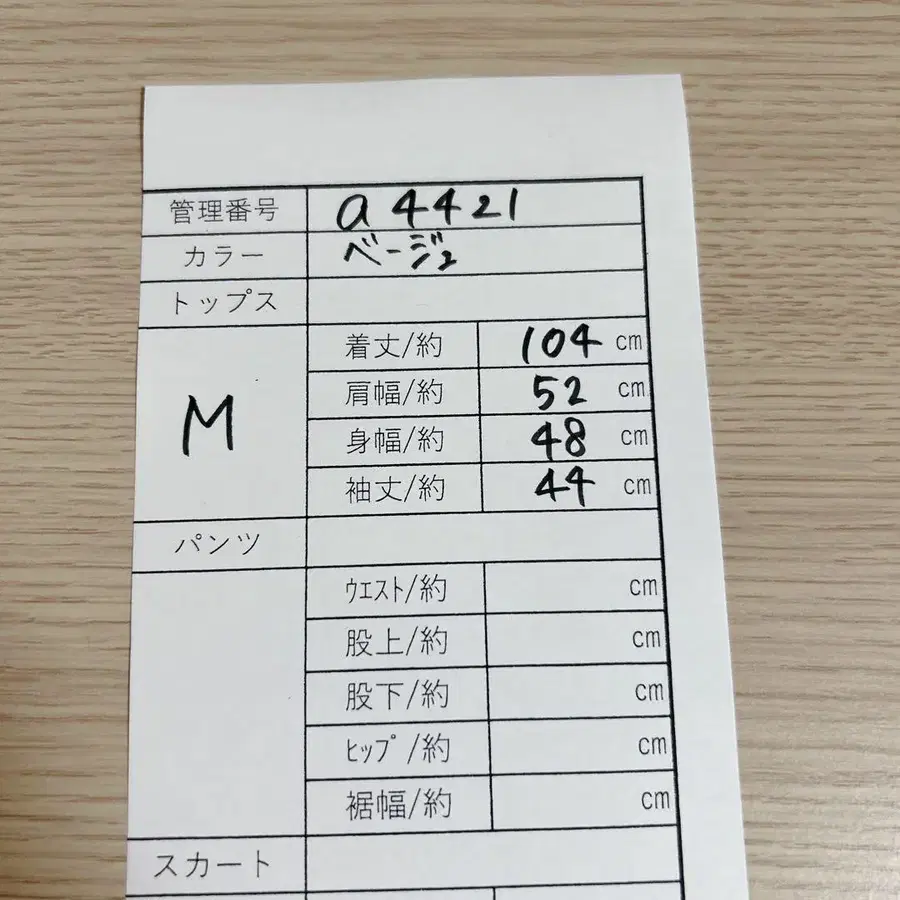 管理番号 a4421
カラー ベージュ
トップス
M
着丈/約 104 cm
肩幅/約 52 cm
身幅/約 48 cm
袖丈/約 44 cm
パンツ
ウエスト/約 cm
股上/約 cm
股下/約 cm
ヒップ/約 cm
裾幅/約 cm
スカート